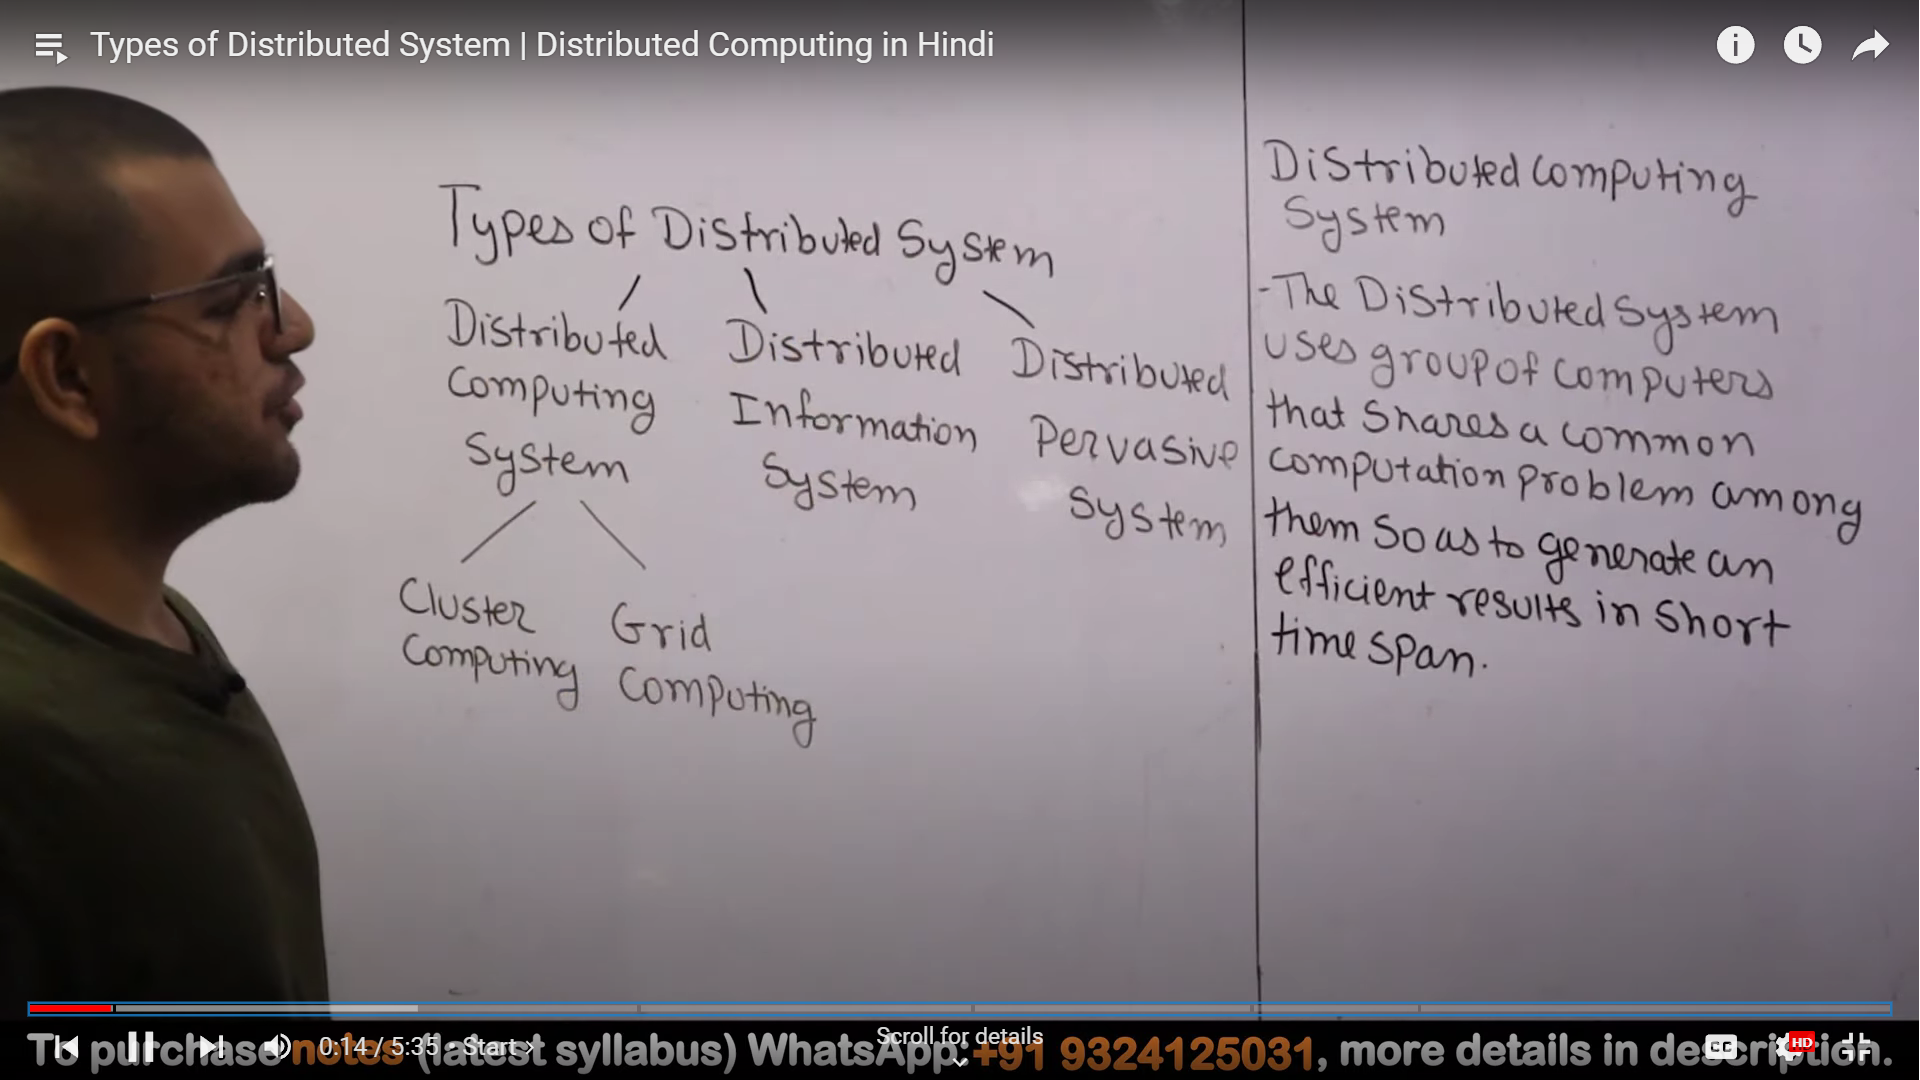 Types of Distributed System | Distributed Computing in Hindi
Types of Distributed System
Distributed
Computing
System
Distributed
Information
System
Distributed
Pervasive
System
Cluster
Computing
Grid
Computing
Distributed Computing
System
-The Distributed System
uses group of computers
that shares a common
computation problem among
them so as to generate an
efficient results in short
time span.
Scroll for details
0:14 / 5:35 • Start >
CC
HD
To purchase notes (latest syllabus) WhatsApp: +91 9324125031, more details in description.